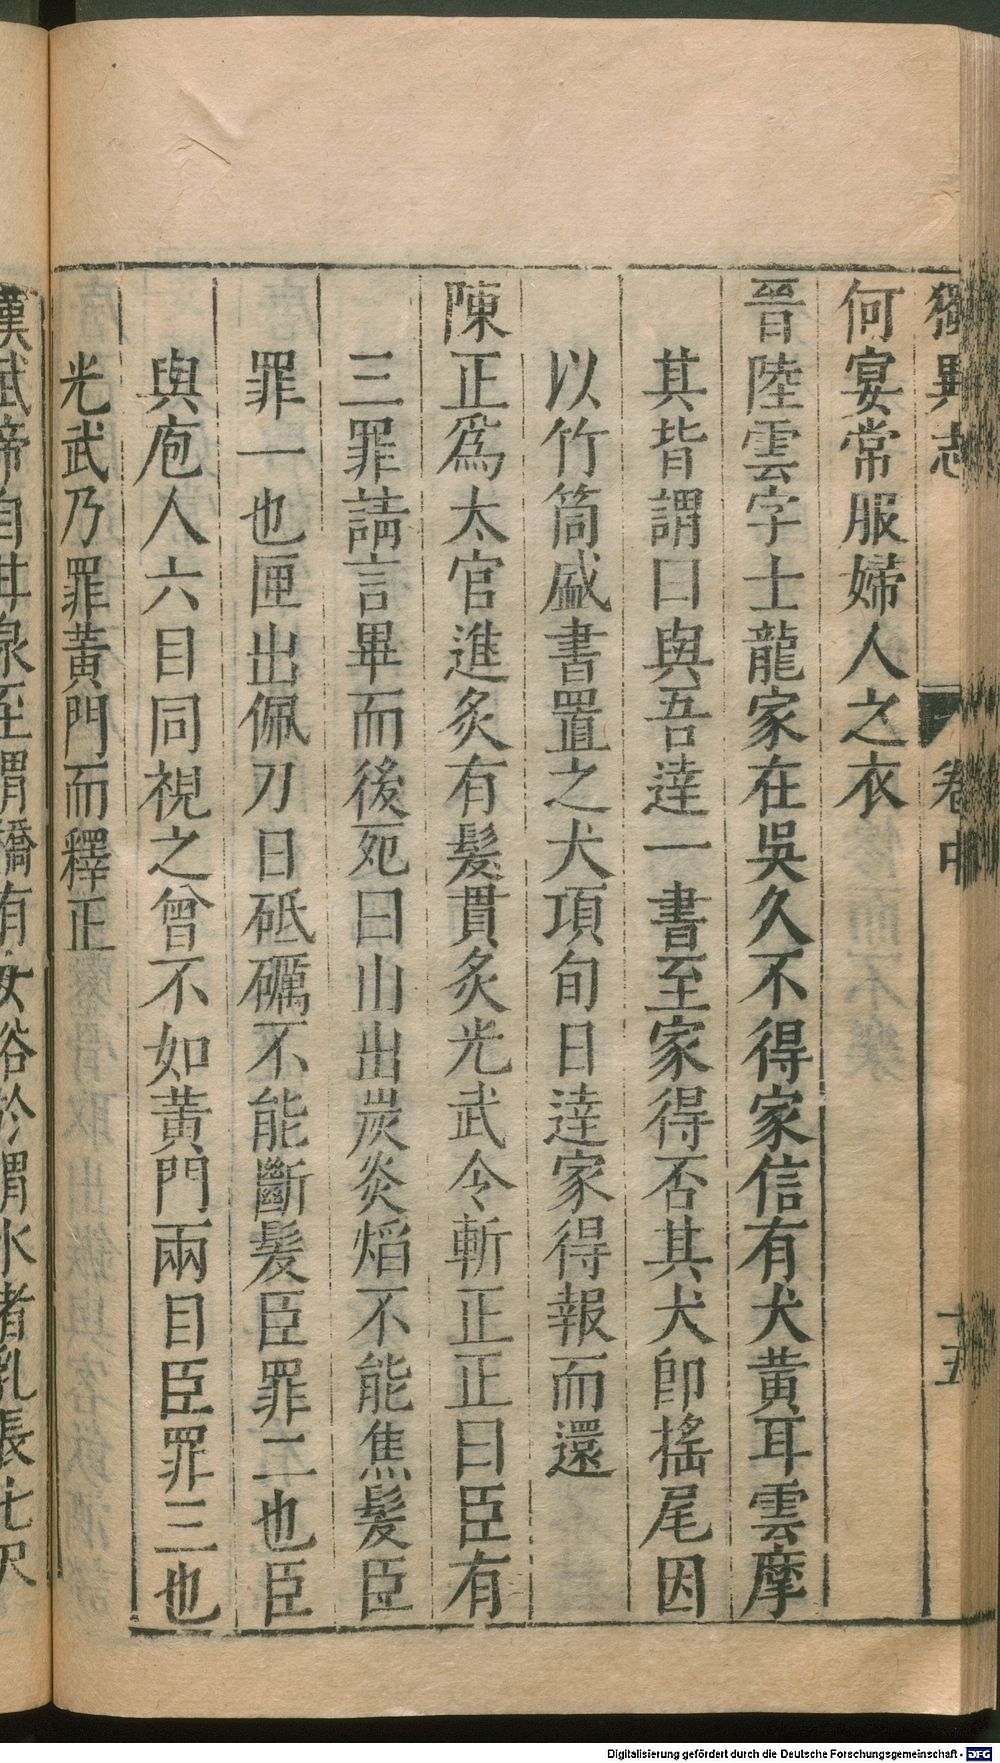 獨異志 卷中 十五
何宴常服婦人之衣
晉陸雲字士龍家在吳久不得家信有犬黃耳雲摩
其背謂曰與吾達一書至家得否其犬卽搖尾因
以竹筒盛書置之犬項旬日達家得報而還
陳正爲太官進炙有髮貫炙光武令斬正正曰臣有
三罪請言畢而後死曰山出炭炎焰不能焦髮臣
罪一也匣出佩刀日砥礪不能斷髮臣罪二也臣
與庖人六目同視之曾不如黃門兩目臣罪三也
光武乃罪黃門而釋正
漢武帝自甘泉至渭橋有女浴於渭水者乳長七尺
Digitalisierung gefördert durch die Deutsche Forschungsgemeinschaft - DFG